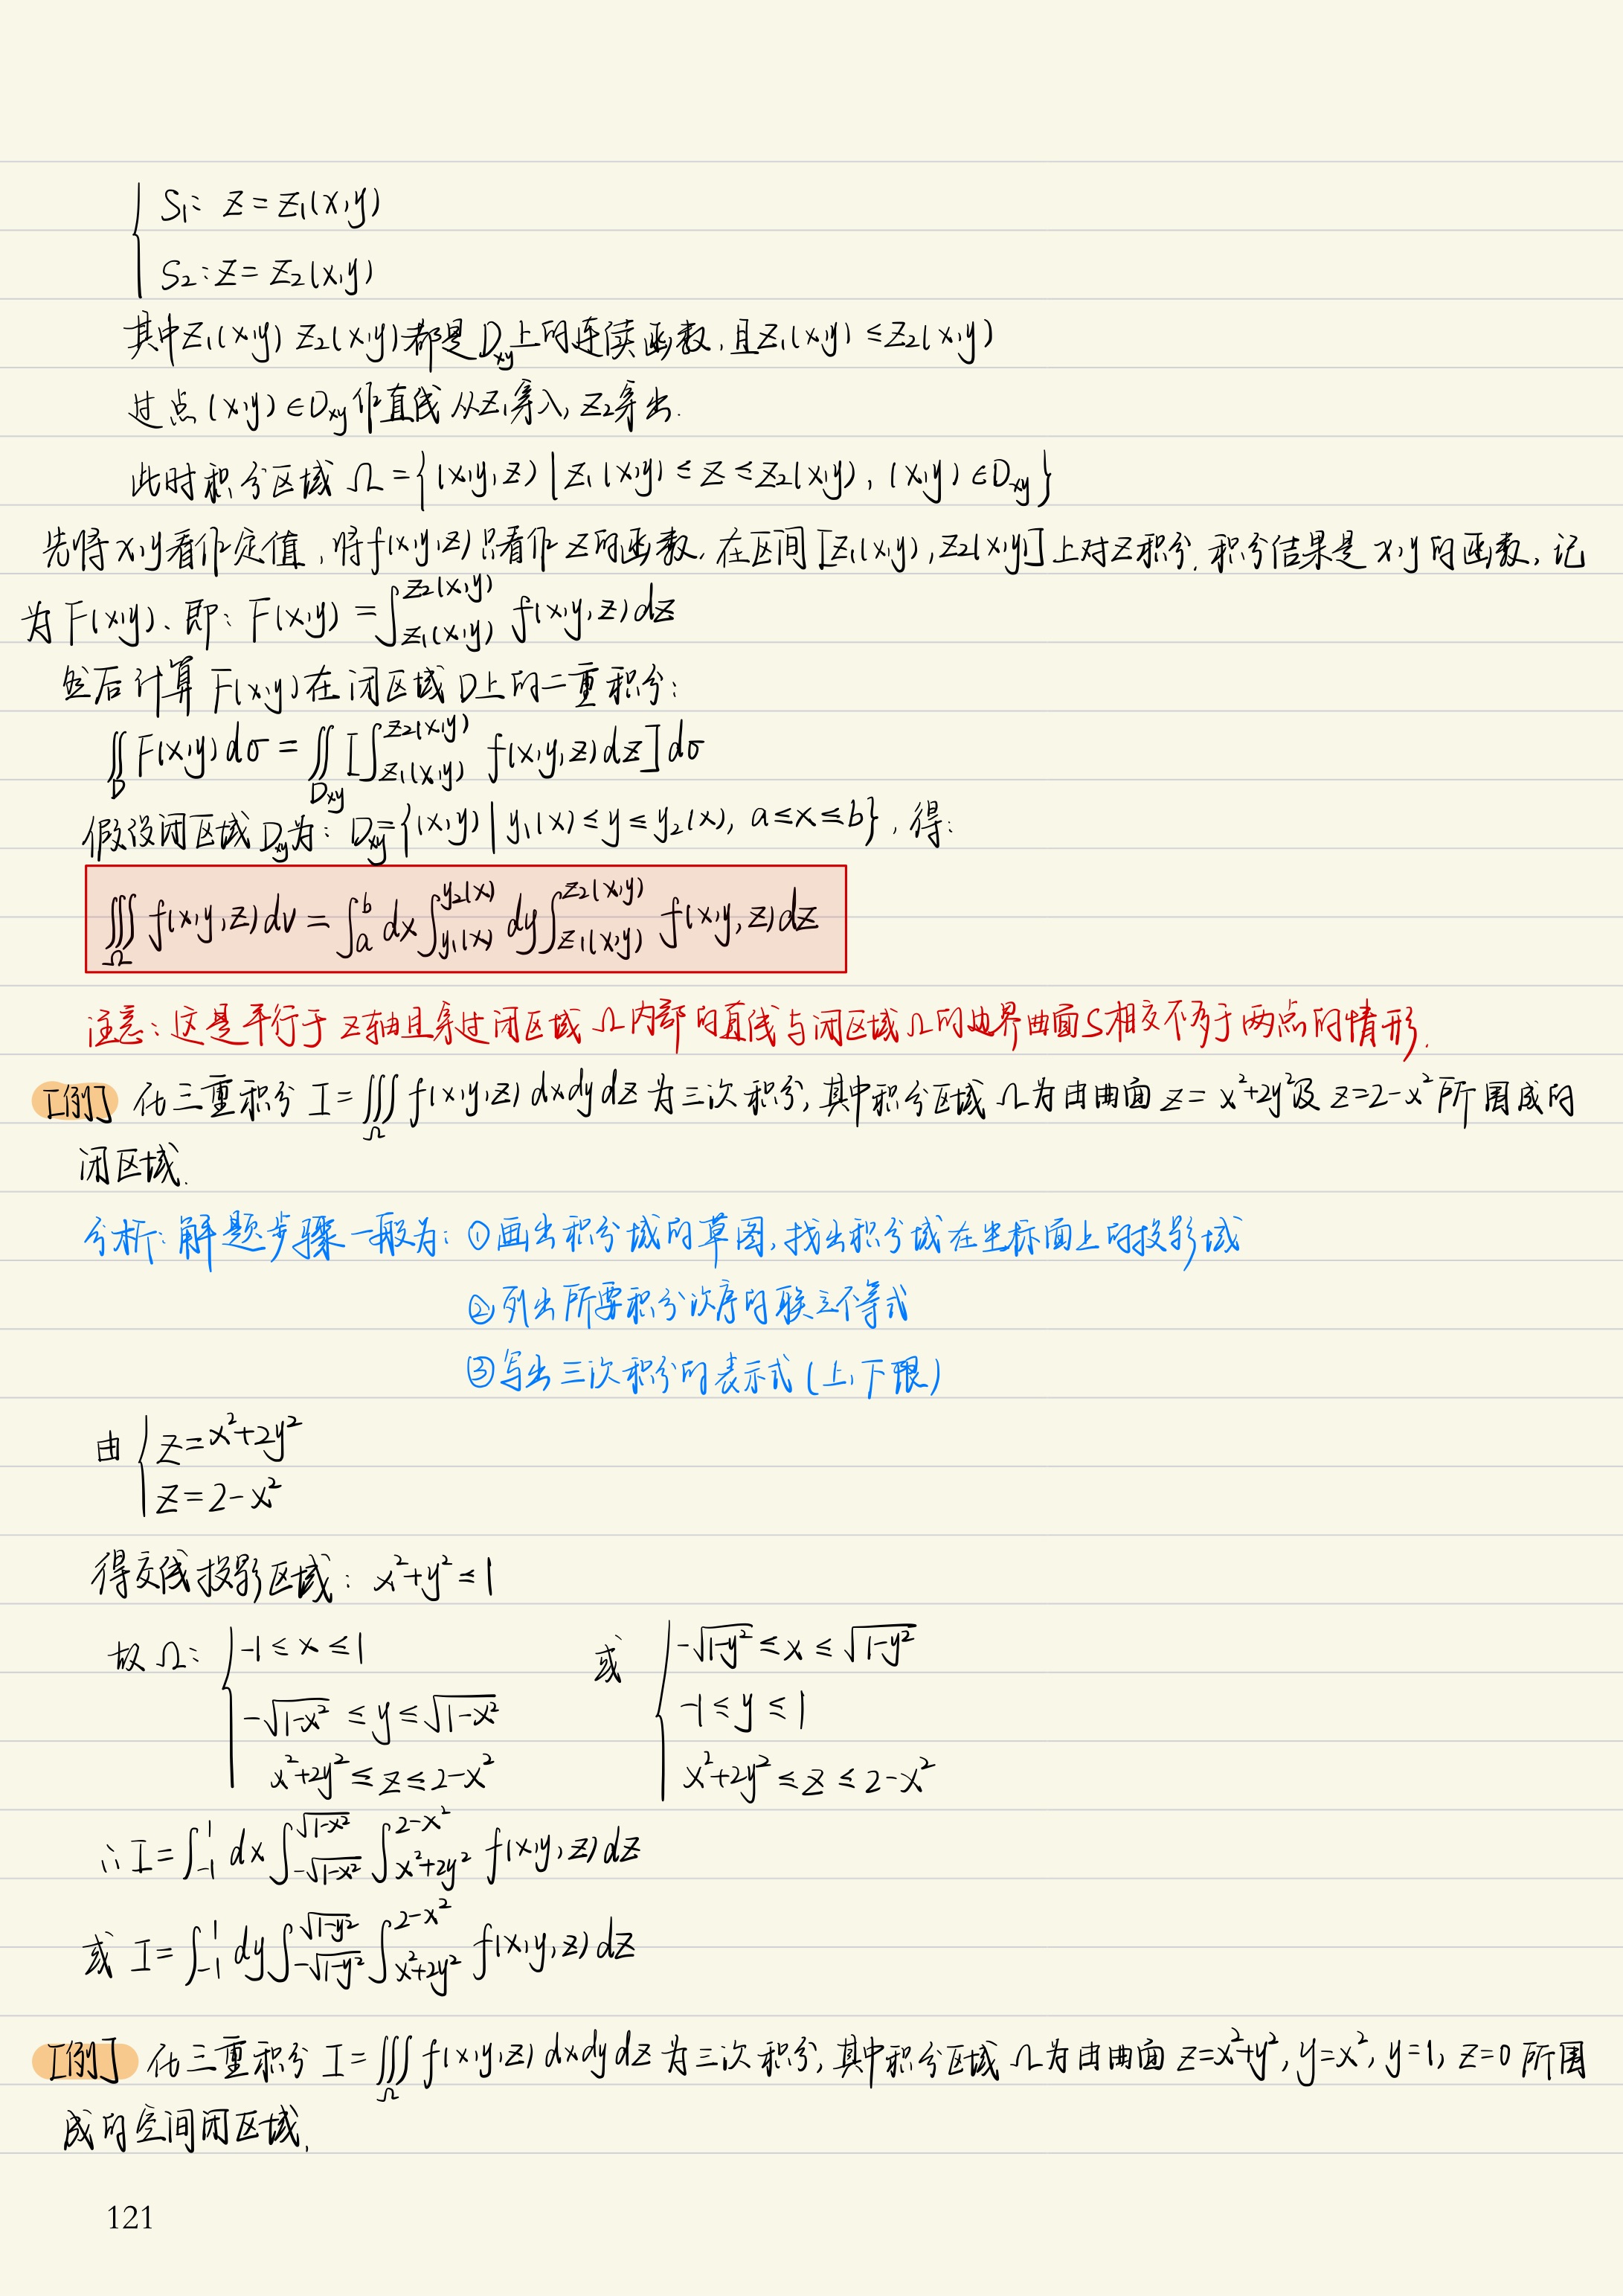 { S₁: z = z₁(x,y)
S₂: z = z₂(x,y)
其中z₁(x,y) z₂(x,y)都是D_xy上的连续函数,且z₁(x,y) ≤ z₂(x,y)
过点(x,y)∈D_xy作直线从z₁穿入,z₂穿出.
此时积分区域 Ω = {(x,y,z) | z₁(x,y) ≤ z ≤ z₂(x,y), (x,y)∈D_xy}
先将x,y看作定值,将f(x,y,z)只看作z的函数,在区间[z₁(x,y), z₂(x,y)]上对z积分.积分结果是x,y的函数,记
为F(x,y)、即: F(x,y) = ∫_{z₁(x,y)}^{z₂(x,y)} f(x,y,z)dz
然后计算F(x,y)在闭区域D上的二重积分:
∬_D F(x,y)dσ = ∬_{D_xy} [∫_{z₁(x,y)}^{z₂(x,y)} f(x,y,z)dz]dσ
假设闭区域D_xy为: D_xy={(x,y) | y₁(x) ≤ y ≤ y₂(x), a≤x≤b}, 得:
∭_Ω f(x,y,z)dv = ∫_a^b dx∫_{y₁(x)}^{y₂(x)} dy∫_{z₁(x,y)}^{z₂(x,y)} f(x,y,z)dz
注意:这是平行于z轴且穿过闭区域Ω内部的直线与闭区域Ω的边界曲面S相交不多于两点的情形.
[例] 化三重积分 I=∭_Ω f(x,y,z) dxdydz 为三次积分,其中积分区域Ω为由曲面 z= x²+2y²及 z=2-x²所围成的
闭区域.
分析:解题步骤一般为: ①画出积分域的草图,找出积分域在坐标面上的投影域
②列出所要积分次序的联立不等式
③写出三次积分的表示式(上,下限)
由 { z=x²+2y²
z=2-x²
得交线投影区域: x²+y² ≤ 1
故Ω: { -1 ≤ x ≤ 1 或 { -√(1-y²) ≤ x ≤ √(1-y²)
-√(1-x²) ≤ y ≤ √(1-x²) -1 ≤ y ≤ 1
x²+2y² ≤ z ≤ 2-x² x²+2y² ≤ z ≤ 2-x²
∴ I=∫_{-1}^{1} dx∫_{-√(1-x²)}^{√(1-x²)} ∫_{x²+2y²}^{2-x²} f(x,y,z)dz
或 I=∫_{-1}^{1} dy∫_{-√(1-y²)}^{√(1-y²)} ∫_{x²+2y²}^{2-x²} f(x,y,z)dz
[例] 化三重积分 I=∭_Ω f(x,y,z) dxdydz 为三次积分,其中积分区域Ω为由曲面 z=x²+y², y=x², y=1, z=0 所围
成的空间闭区域.
121